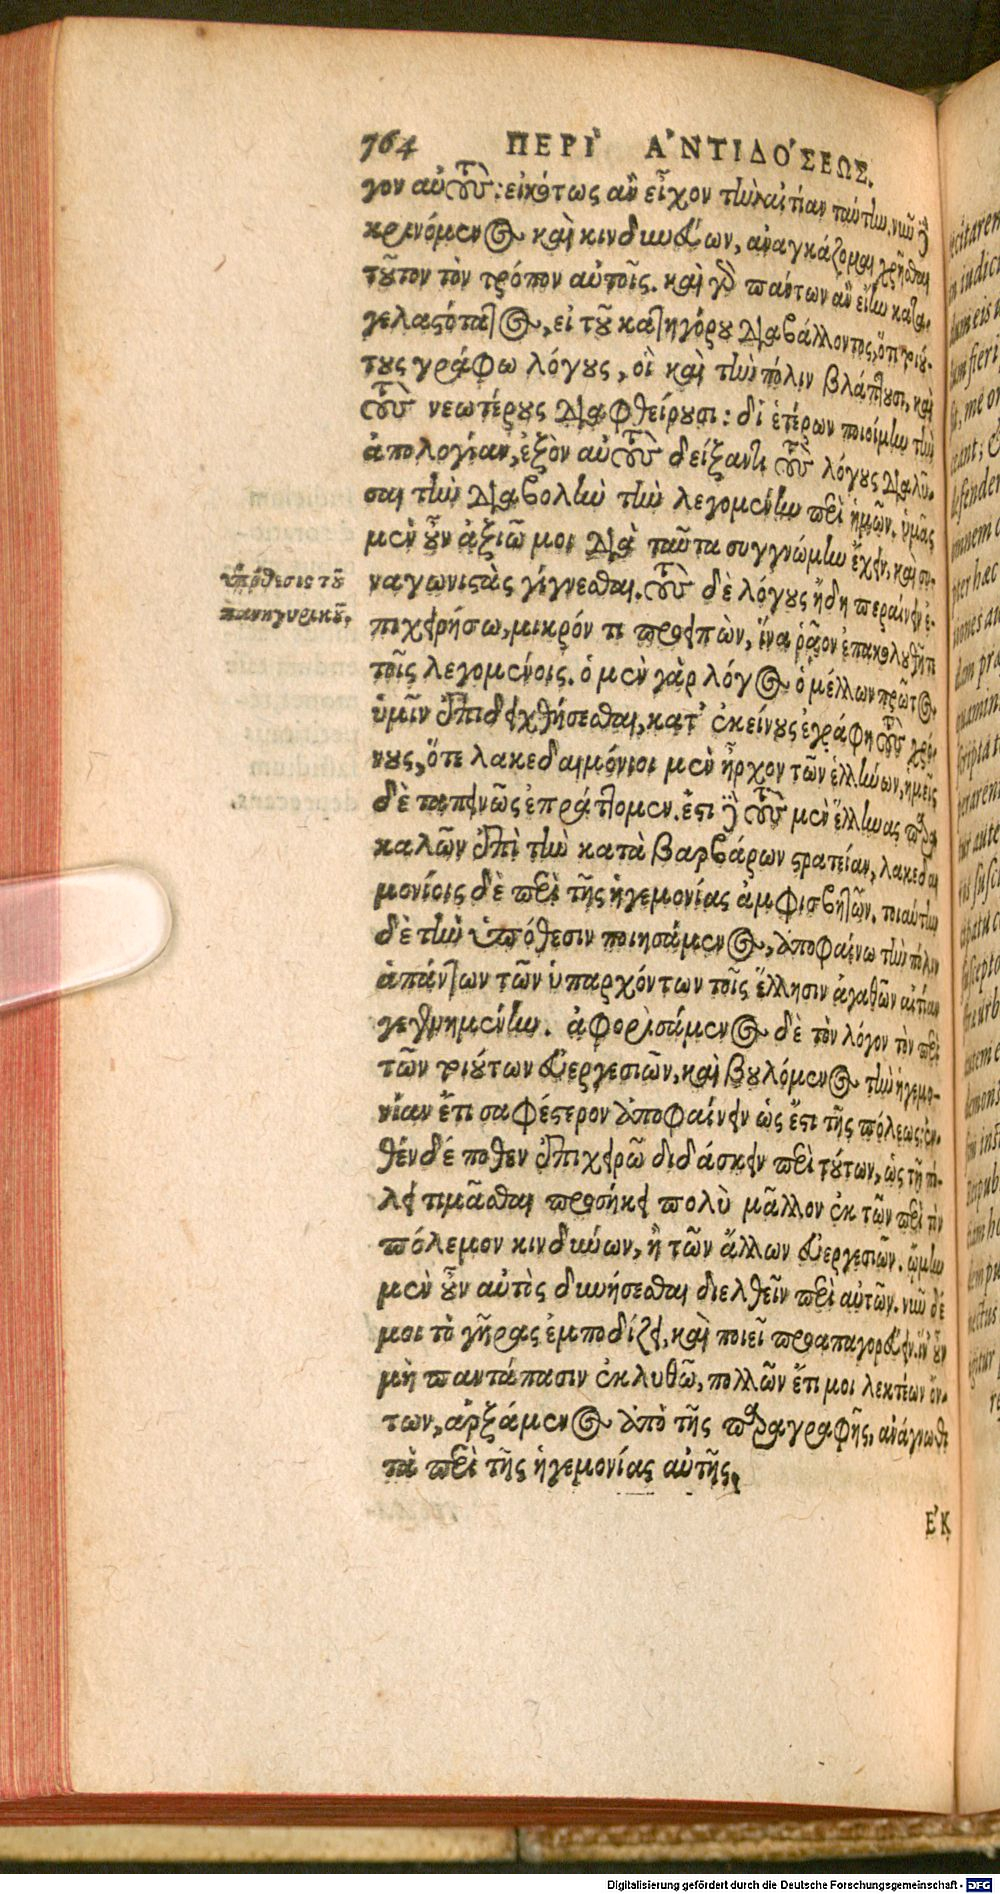 764 ΠΕΡῚ ἈΝΤΙΔΟ΄ΣΕΩΣ.
γον αὐτοὺς: εἰκότως ἂν εἶχον τὴν αἰτίαν ταύτην. νῦν δὲ
κρινόμενος καὶ κινδυνεύων, ἀναγκάζομαι χρῆσθαι
τοῦτον τὸν τρόπον αὐτοῖς. καὶ γὸ πάντων ἂν εἴην καταγελαστότατος,
εἰ τοῦ κατηγόρου διαβάλλοντος, ὅτι τοιούτους
γράφω λόγους, οἳ καὶ τὴν πόλιν βλάπτουσι, καὶ
τοὺς νεωτέρους διαφθείρουσι: δι ἑτέρων ποιοίμην τὴν
ἀπολογίαν, ἐξὸν αὐτοὺς δείξαντι τοὺς λόγους διαλῦσαι
τὴν διαβολὴν τὴν λεγομένην περὶ ἡμῶν. ὑμᾶς
μὲν οὖν ἀξιῶ μοι διὰ ταῦτα συγγνώμην ἔχειν, καὶ συναγωνιστὰς
γίγνεσθαι. τοὺς δὲ λόγους ἤδη περαίνειν ἐπιχειρήσω,
μικρόν τι προειπὼν, ἵνα ῥᾷον ἐπακολουθῆτε
τοῖς λεγομένοις. ὁ μὲν γὰρ λόγος ὁ μέλλων πρῶτος
ὑμῖν ἐπιδειχθήσεσθαι, κατ’ ἐκείνους ἐγράφη τοὺς χρόνους,
ὅτε λακεδαιμόνιοι μὲν ἦρχον τῶν ἑλλήνων, ἡμεῖς
δὲ ταπεινῶς ἐπράττομεν. ἔστι δὲ τοὺς μὲν ἕλληνας παρακαλῶν
ἐπὶ τὴν κατὰ βαρβάρων στρατείαν, λακεδαιμονίοις
δὲ περὶ τῆς ἡγεμονίας ἀμφισβητῶν. τοιαύτην
δὲ τὴν ὑπόθεσιν ποιησάμενος, ἀποφαίνω τὴν πόλιν
ἁπάντων τῶν ὑπαρχόντων τοῖς ἕλλησιν ἀγαθῶν αἰτίαν
γεγενημένην. ἀφορισάμενος δὲ τὸν λόγον τὸν περὶ
τῶν τοιούτων εὐεργεσιῶν, καὶ βουλόμενος τὴν ἡγεμονίαν
ἔτι σαφέστερον ἀποφαίνειν ὡς ἔστι τῆς πόλεως: ἐνθένδέ
ποθεν ἐπιχειρῶ διδάσκειν περὶ τούτων, ὡς τῇ πόλει
τιμᾶσθαι προσήκει πολὺ μᾶλλον ἐκ τῶν περὶ τὸν
πόλεμον κινδύνων, ἢ τῶν ἄλλων εὐεργεσιῶν. ᾤμην
μὲν οὖν αὐτὸς δυνήσεσθαι διελθεῖν περὶ αὐτῶν. νῦν δέ
μοι τὸ γῆρας ἐμποδίζει, καὶ ποιεῖ προαπαγορεύειν. ἵν’ οὖν
μὴ παντάπασιν ἐκλυθῶ, πολλῶν ἔτι μοι λεκτέων ὄντων,
ἀρξάμενος ἀπὸ τῆς παραγραφῆς, ἀνάγνωθι
τὰ περὶ τῆς ἡγεμονίας αὐτῆς.
ἘΚ
ὑπόθεσις τοῦ
πανηγυρικοῦ.
Digitalisierung gefördert durch die Deutsche Forschungsgemeinschaft - DFG